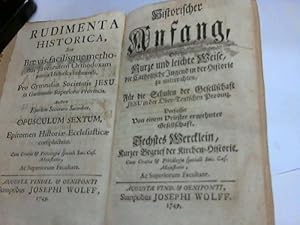 RUDIMENTA
HISTORICA,
Sive
Brevis, facilisque metho-
dus Juventutem Orthodoxam
notitiâ Historicâ imbuendi,
Pro Gymnasiis Societatis JESU
in Germaniæ Superioris Provincia.
Authore
Ejusdem Societatis Sacerdote.
OPUSCULUM SEXTUM,
Epitomen Historiæ Ecclesiasticæ
complectens.
Cum Gratia & Privilegio speciali Sac. Cæs.
Majestatis,
Ac Superiorum Facultate.
AUGUSTÆ VINDEL. & OENIPONTI
Sumptibus JOSEPHI WOLFF,
1749.
Historischer
Anfang,
Oder:
Kurze und leichte Weise,
die Catholische Jugend in der Historie
zu unterrichten;
Für die Schulen der Gesellschaft
JESU in der Ober-Teutschen Provinz.
Verfasset
Von einem Priester ermeldter
Gesellschaft.
Sechstes Wercklein,
Kurzer Begriff der Kirchen-Historie.
Cum Gratia & Privilegio speciali Sac. Cæs.
Majestatis,
Ac Superiorum Facultate.
AUGUSTÆ VINDEL. & OENIPONTI,
Sumptibus JOSEPHI WOLFF,
1749.